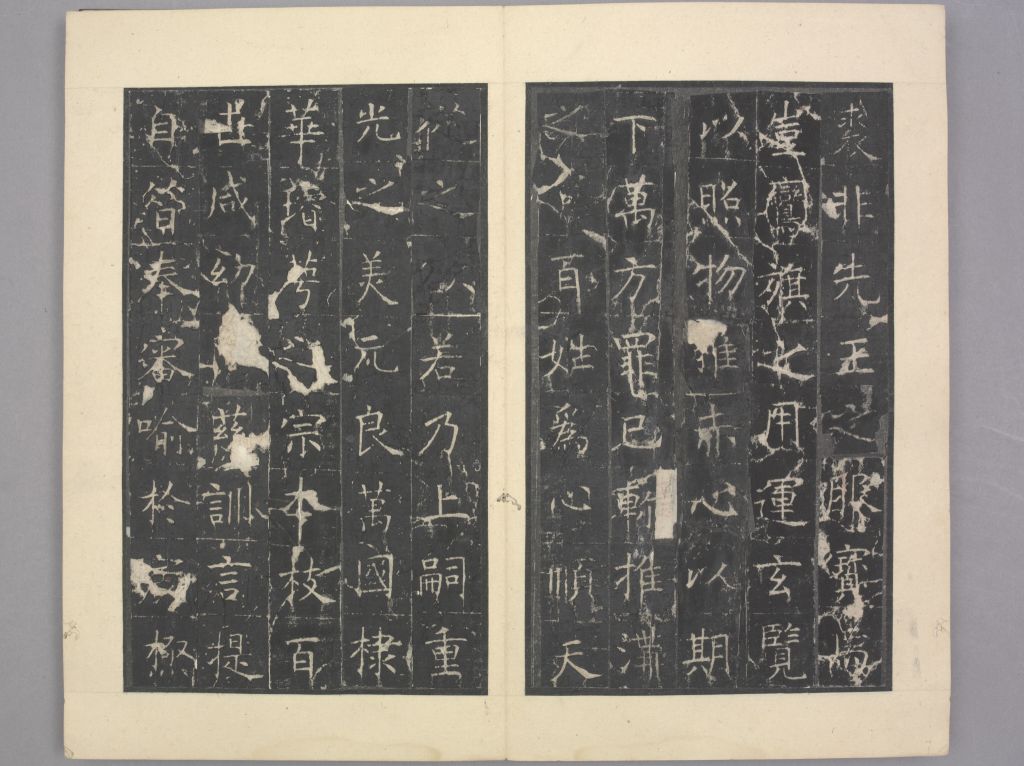 裘非先王之服寶馬
壹鸞旗之用運玄覽
以照物推赤心以期
下萬方罪己斬推溝
之百姓爲心順天
從之若乃上嗣重
光之美元良萬國棣
華增萼之宗本枝百
世咸幼慈訓言提
自簡奉審喻於